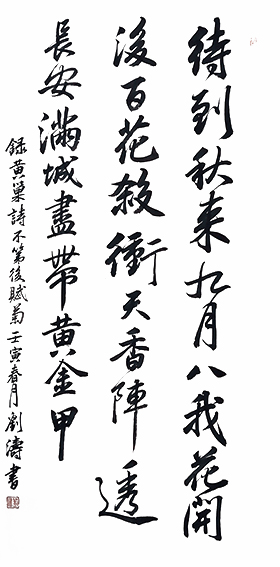 待到秋来九月八我花開
後百花殺衝天香陣透
長安滿城盡帶黄金甲
録黄巢詩不第後賦菊壬寅春月劉濤書